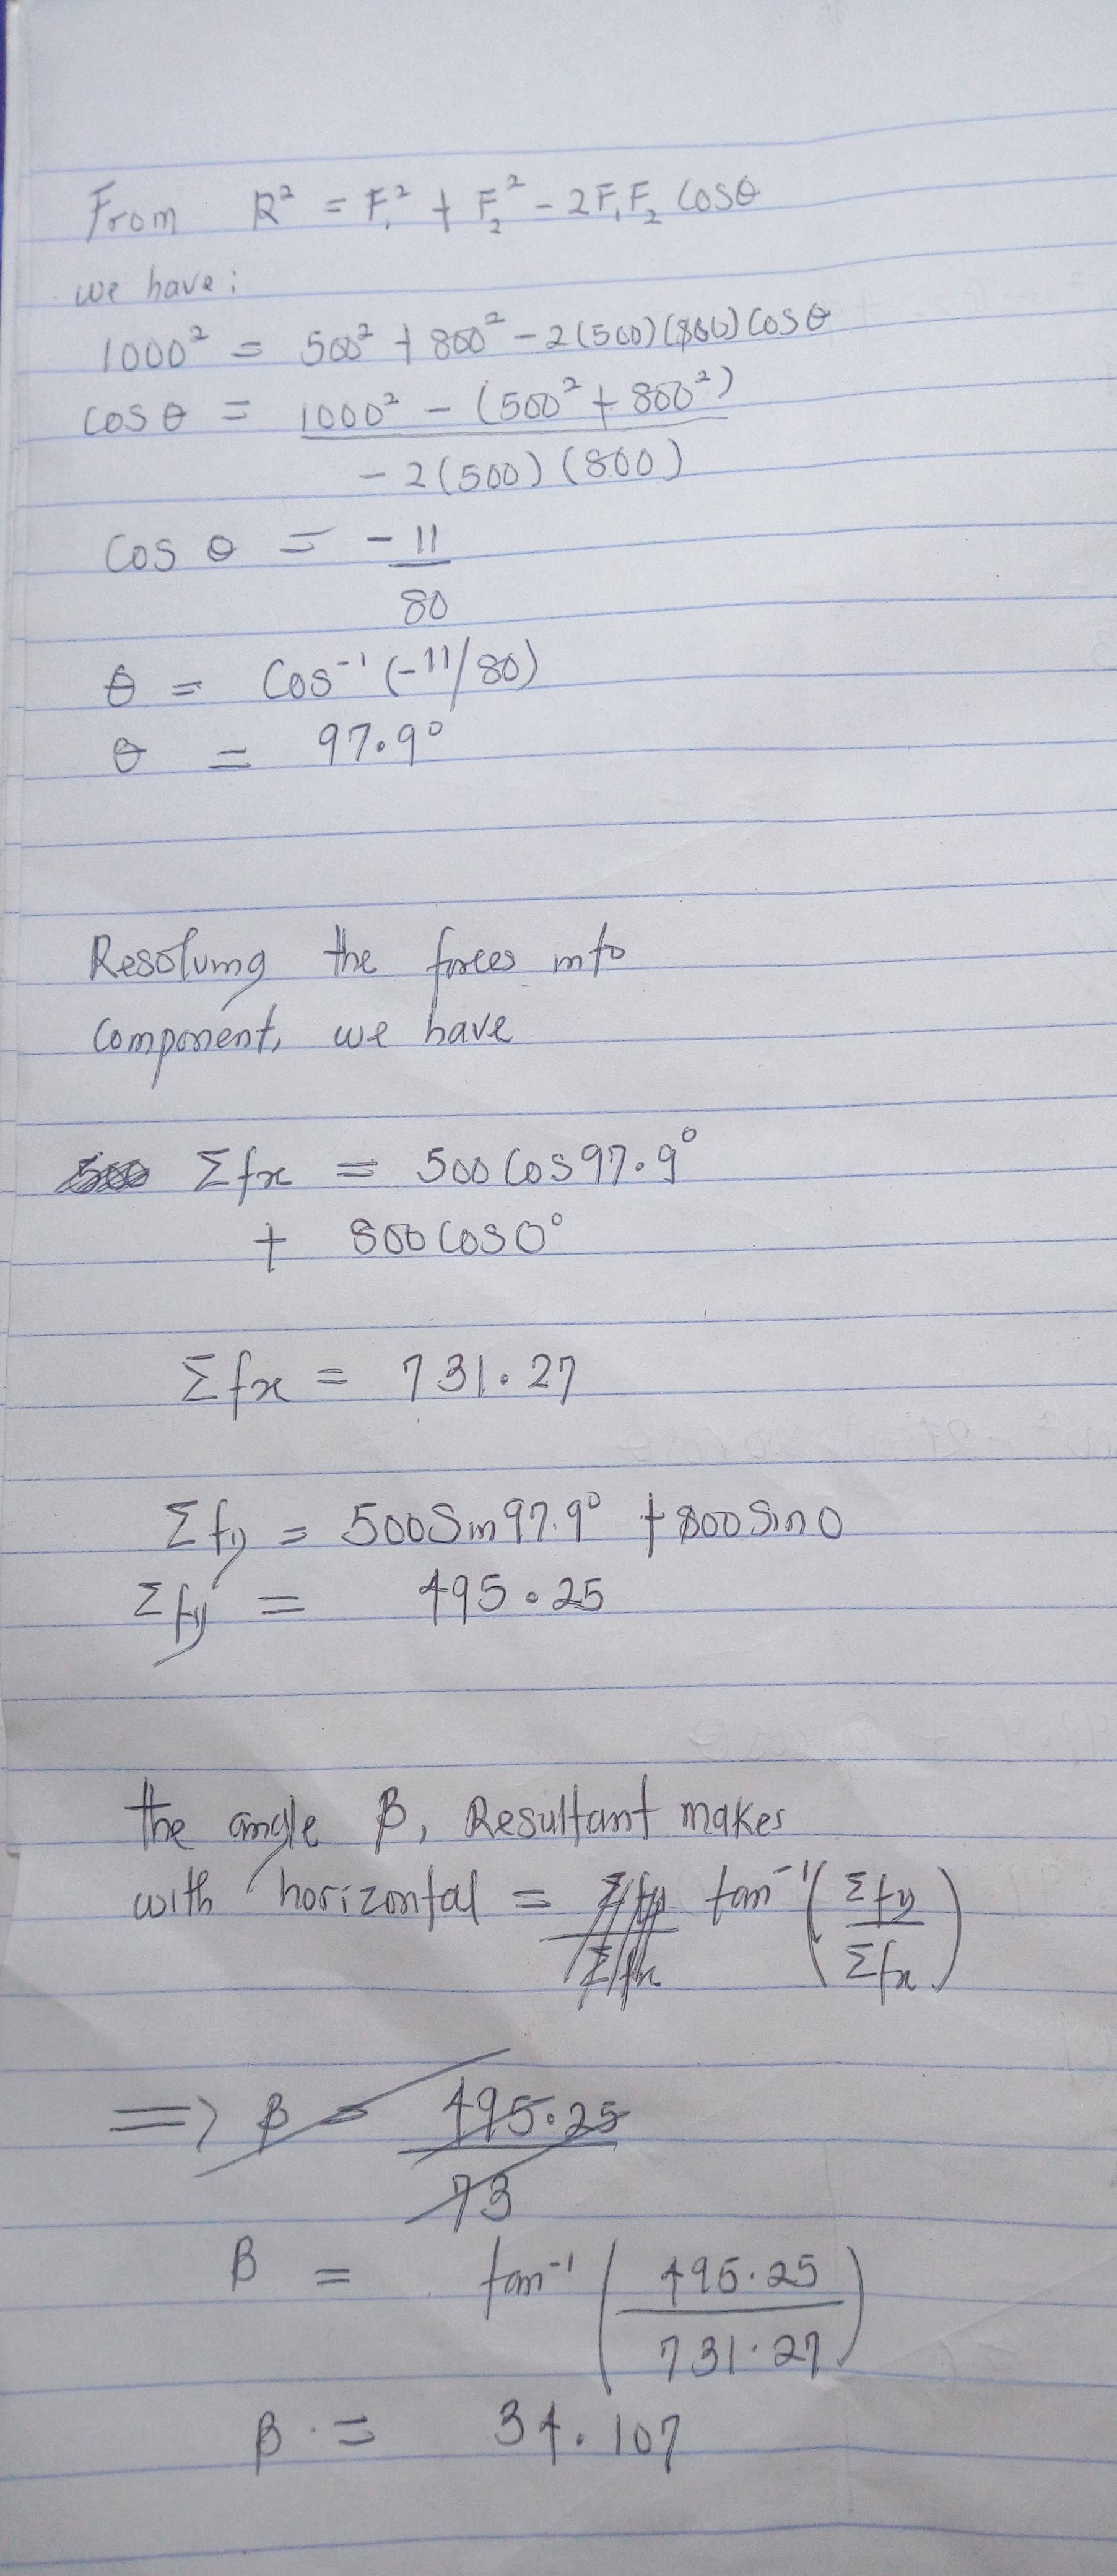 From R² = F₁² + F₂² - 2F₁F₂ Cosθ
we have:
1000² = 500² + 800² - 2(500)(800) Cosθ
cosθ = 1000² - (500² + 800²)
- 2(500)(800)
Cos θ = - 11
80
θ = Cos⁻¹(-11/80)
θ = 97.9°
Resolving the forces into
component, we have
500 Σfx = 500 Cos 97.9°
+ 800 Cos 0°
Σfx = 731.27
Σfy = 500 Sin 97.9° + 800 Sin 0
Σfy = 495.25
the angle β, Resultant makes
with horizontal = Σfy/Σfx tan⁻¹(Σfy/Σfx)
=> β = 495.25
73
β = tan⁻¹(495.25/731.27)
β = 34.107